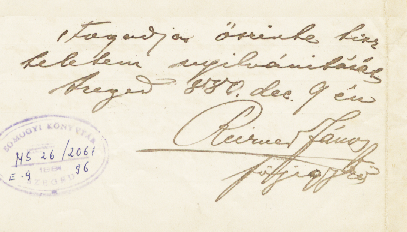 Fogadja őszinte tisz
teletem nyilvánítását
Szeged 880. dec. 9 én
Reizner János
főjegyző
SOMOGYI KÖNYVTÁR
MS 26/2061
E-9 86
SZEGED